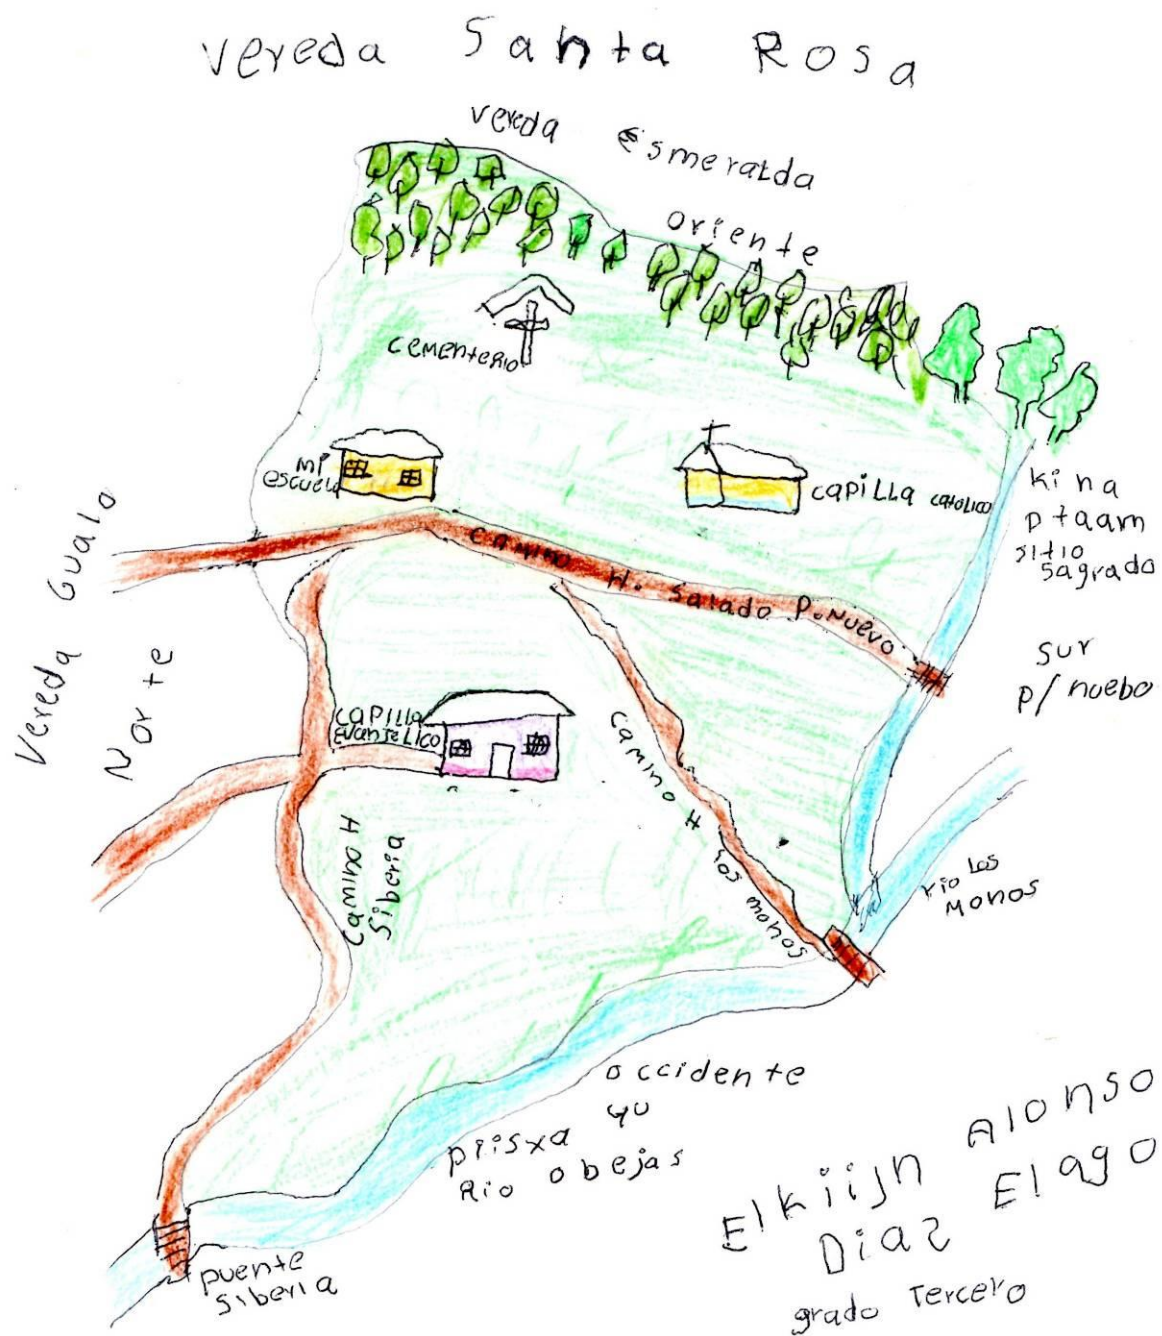 Vereda Santa Rosa
vereda Esmeralda
oriente
cementerio
mi
escuela
capilla catolico
kina
ptaam
sitio
sagrado
Vereda Gualo
Norte
camino H. Salado P. Nuevo
sur
p/ nuebo
capilla
Evantelico
camino H los monos
camino H
Siberia
rio Los
Monos
occidente
yu
piisxa
Rio obejas
puente
Siberia
Elkiijn Alonso
Diaz Elago
grado Tercero